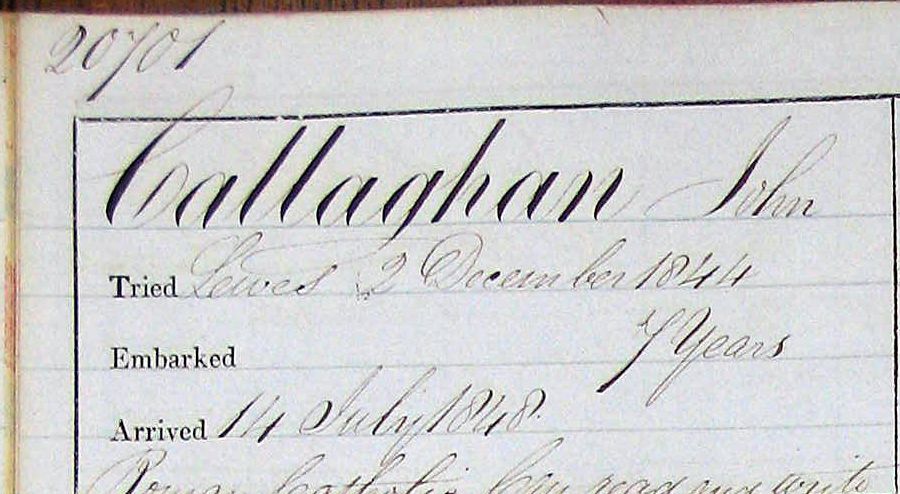 20701
Callaghan John
Tried Lewes 2 December 1844
7 Years
Embarked
Arrived 14 July 1848.
Roman Catholic Can read and write